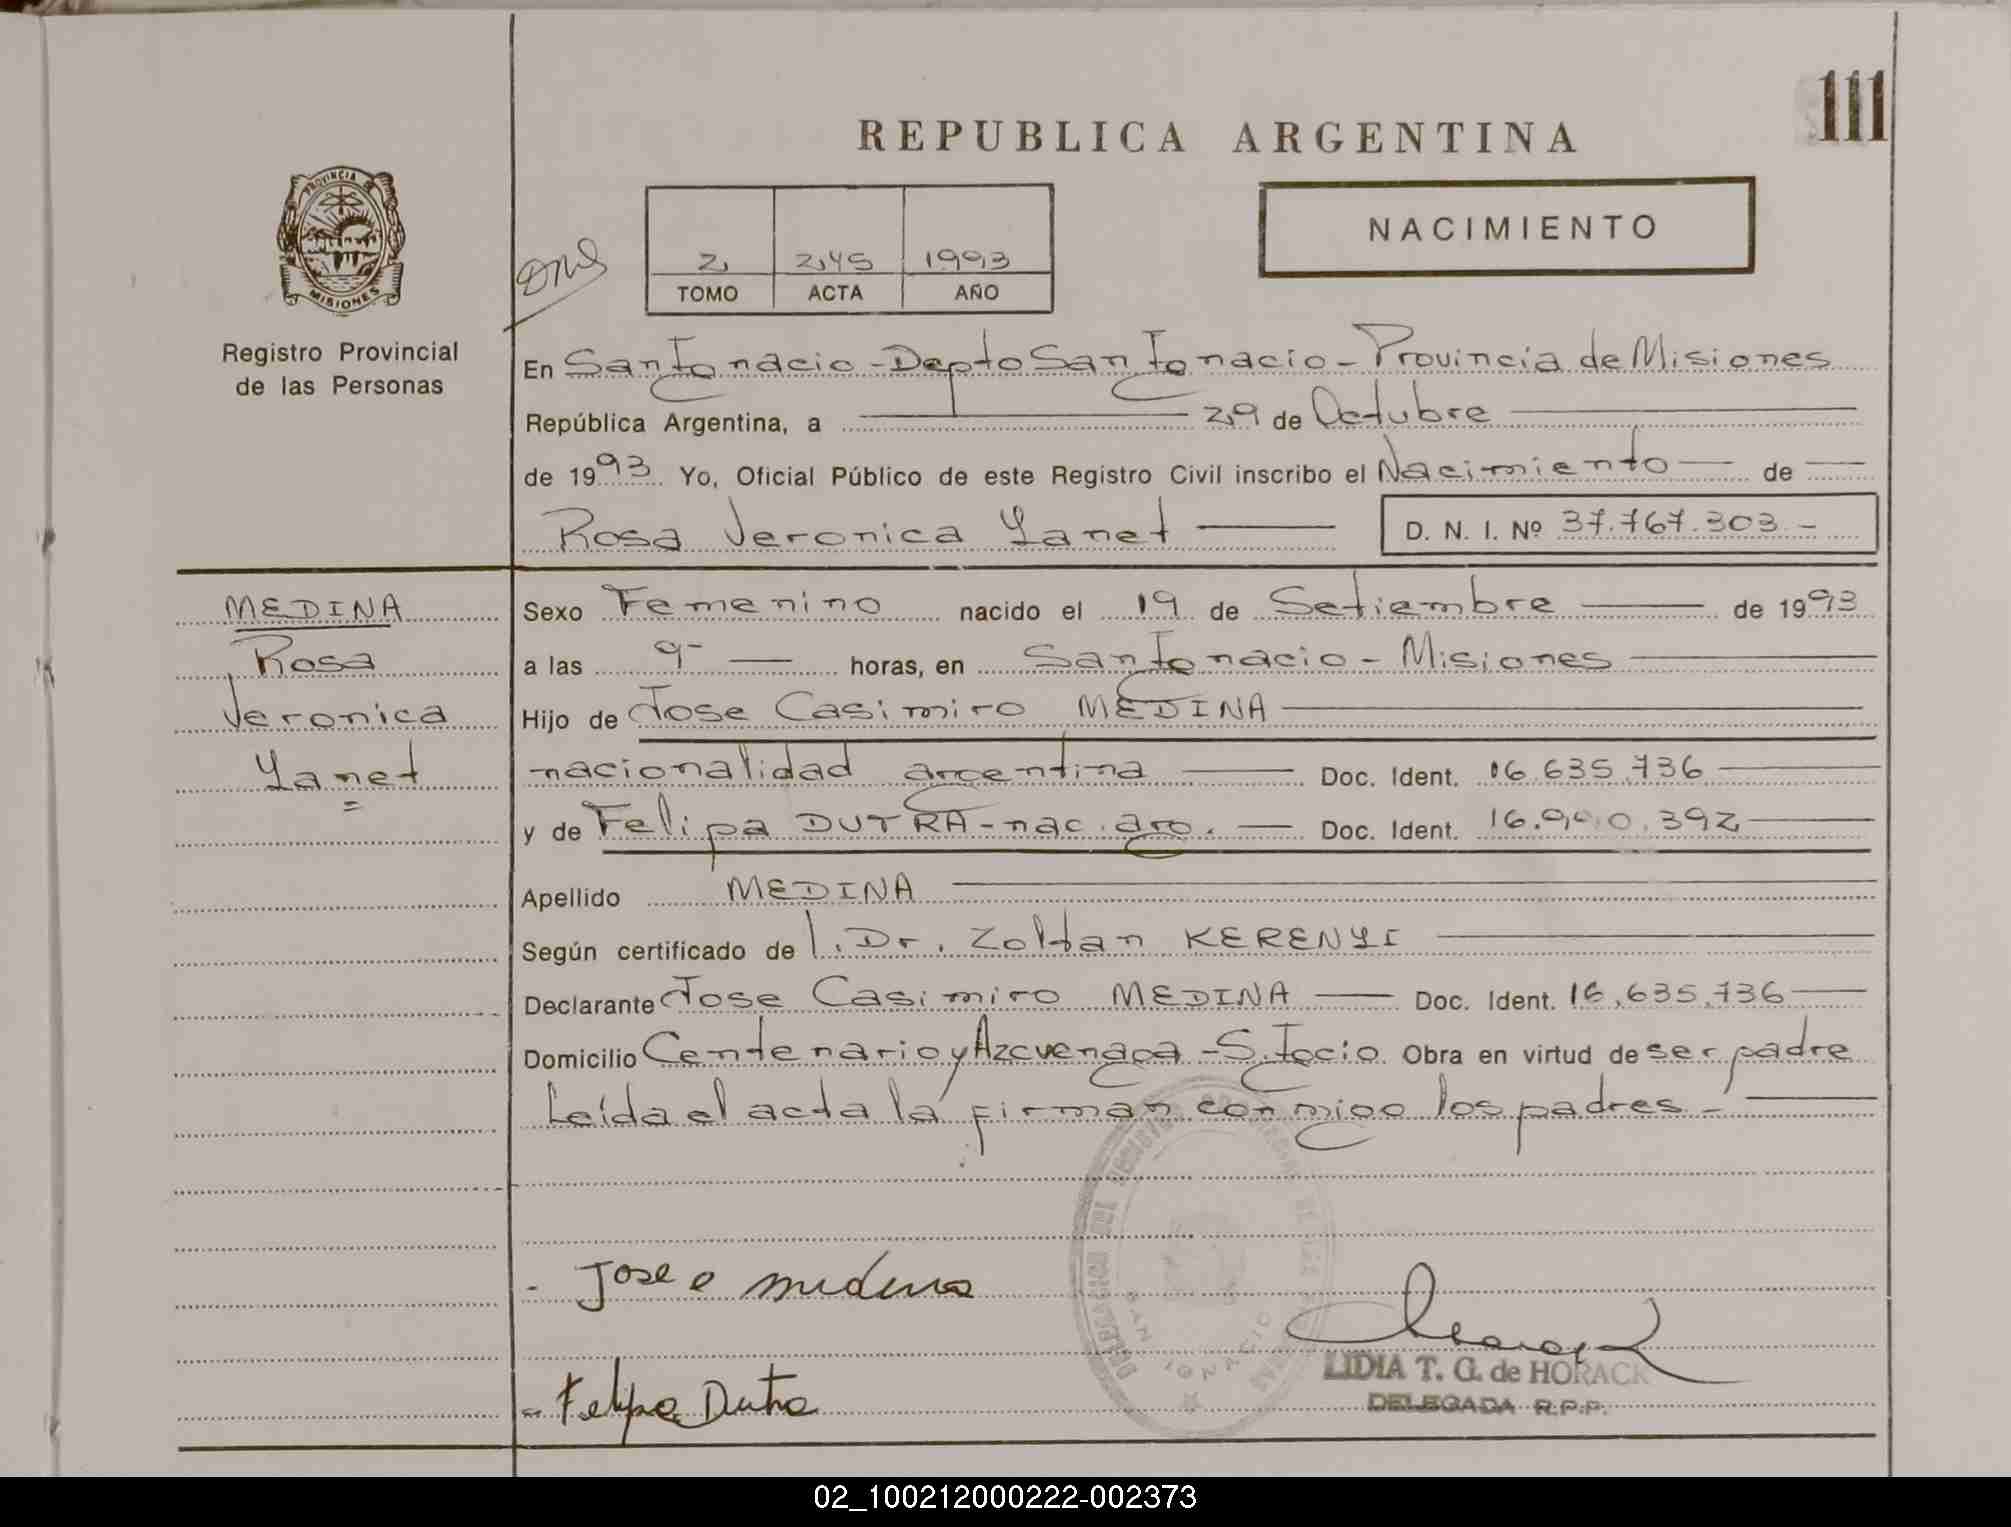 111
REPUBLICA ARGENTINA
NACIMIENTO
PROVINCIA DE
MISIONES
Registro Provincial
de las Personas
2 245 1993
TOMO ACTA AÑO
En San Ignacio - Depto San Ignacio - Provincia de Misiones
República Argentina, a 29 de Octubre
de 1993 Yo, Oficial Público de este Registro Civil inscribo el Nacimiento de
Rosa Veronica Yanet D. N. I. Nº 37.767.303.-
MEDINA
Rosa
Veronica
Yanet
Sexo Femenino nacido el 19 de Setiembre de 1993
a las 9- horas, en San Ignacio - Misiones
Hijo de Jose Casimiro MEDINA
nacionalidad argentina Doc. Ident. 16.635.736
y de Felipa DUTRA - nac. arg. Doc. Ident. 392
Apellido MEDINA
Según certificado de l. Dr. Zoltan KERENYI
Declarante Jose Casimiro MEDINA Doc. Ident. 16.635.736
Domicilio Centenario y Azcuenaga - S. Igcio. Obra en virtud de ser padre
Leída el acta la firman conmigo los padres.-
DELEGACION DEL REGISTRO PROVINCIAL DE LAS PERSONAS
SAN IGNACIO
- Jose c medina
- Felipa Dutra
LIDIA T. G. de HORACK
DELEGADA R.P.P.
02_100212000222-002373